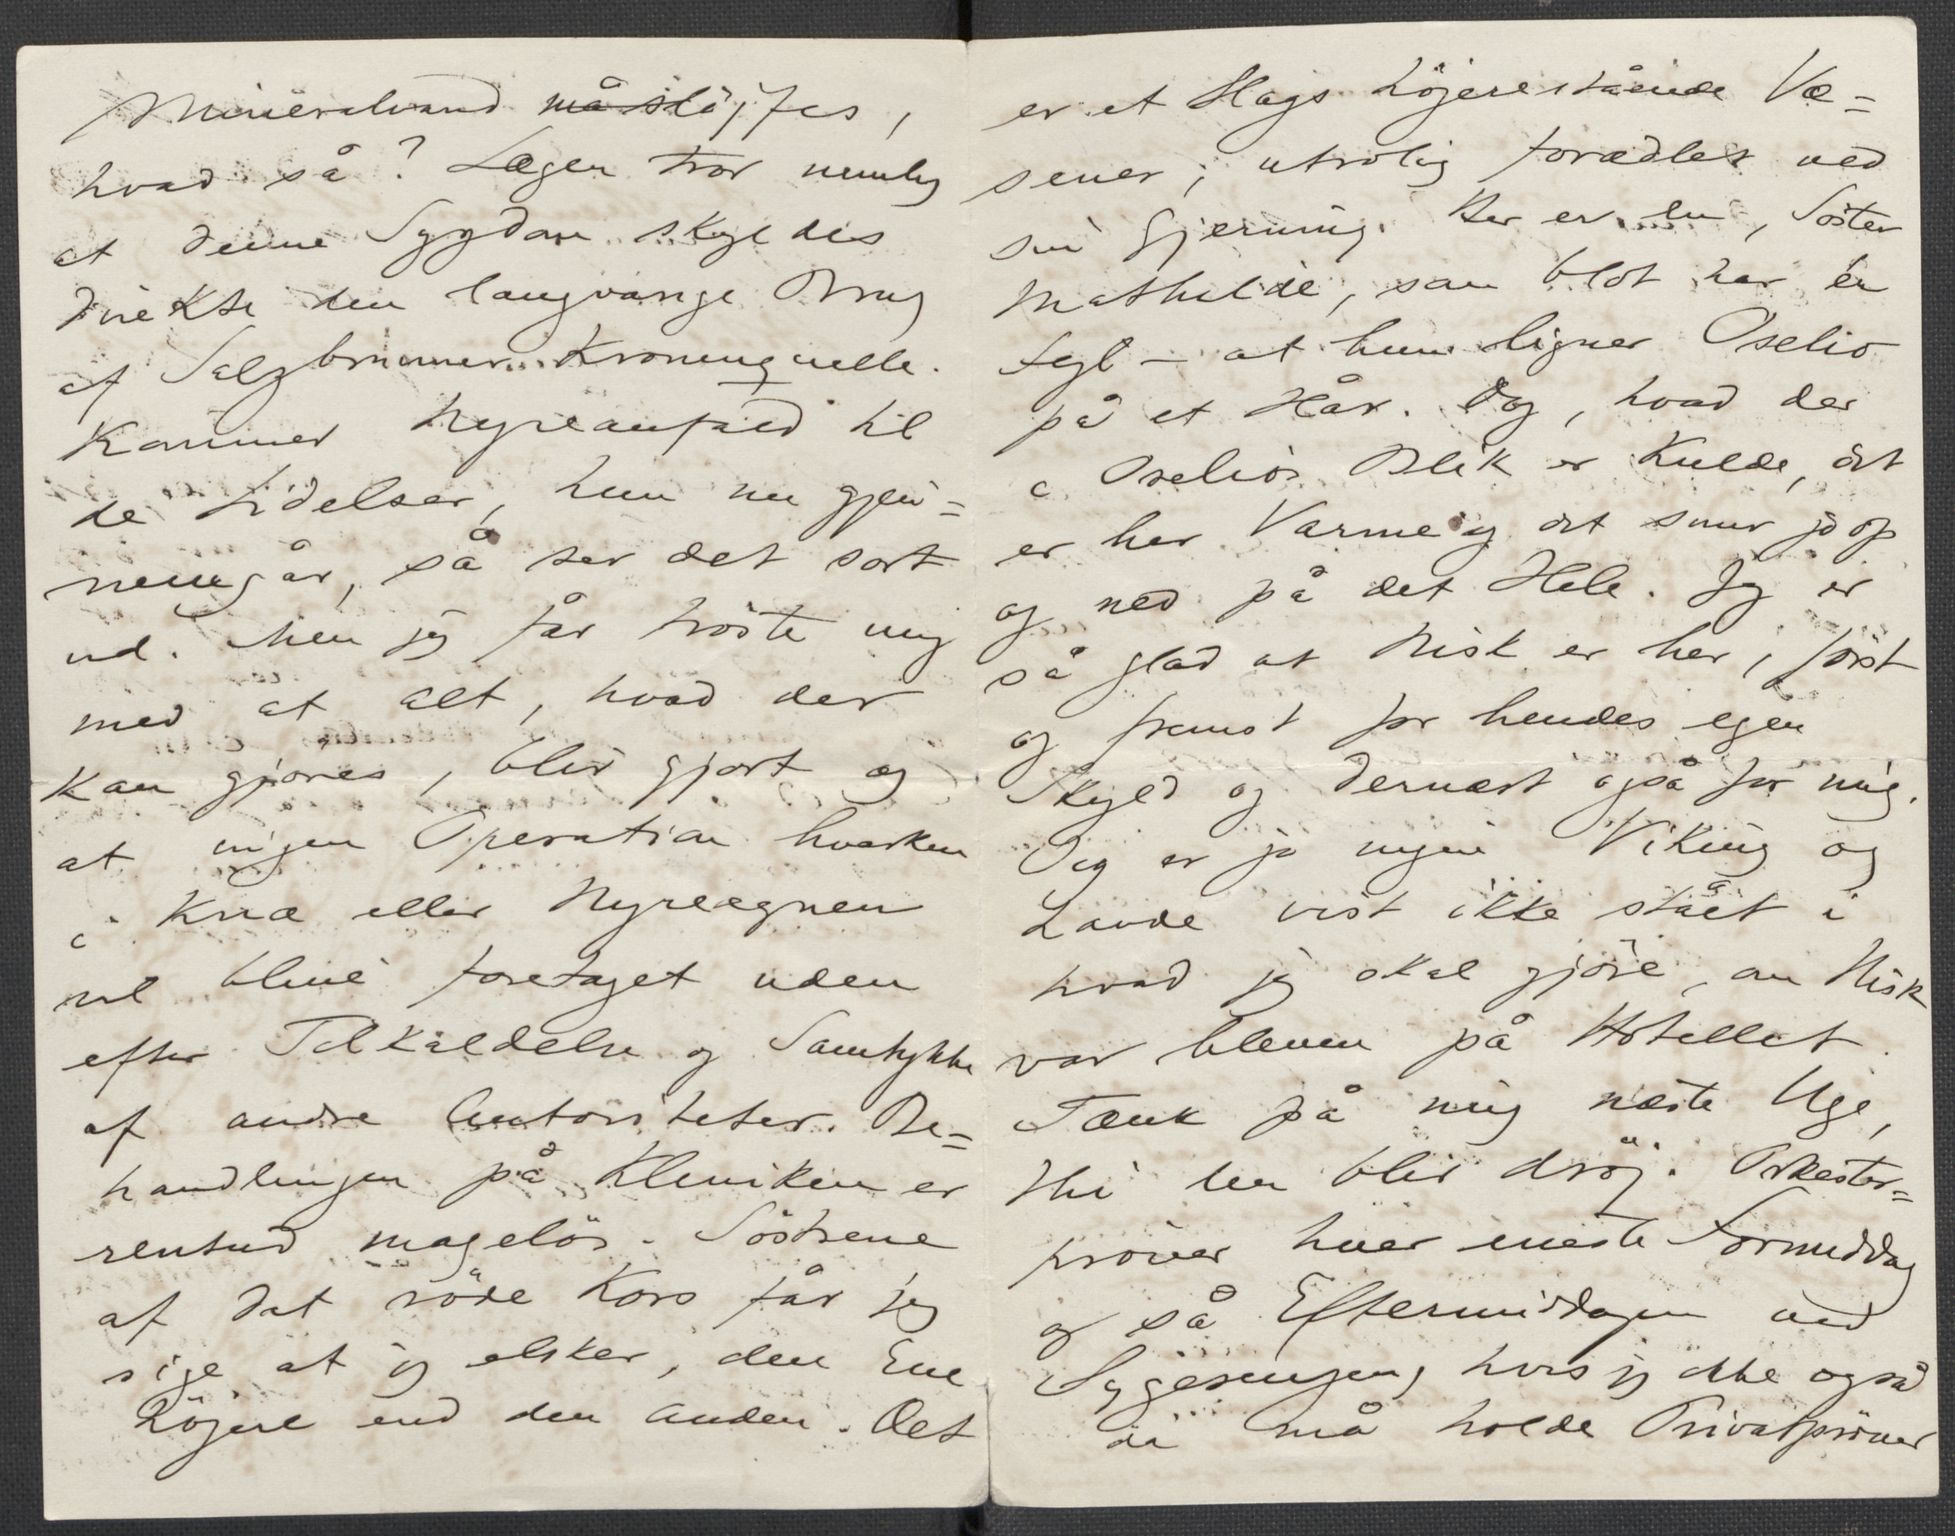 Mineralvand må slöjfes,
hvad så? Lægen tror nemlig
at denne Sygdom skyldes
direkte den langvarige Brug
af Salzbrunner Kronenquelle.
Kommer Nyreanfald til
de Lidelser, hun nu gjen=
nemgår, så ser det sort
ud. Men jeg får tröste mig
med at alt, hvad der
kan gjöres, blir gjort og
at ingen Operation hverken
i Knæ eller Nyreegnen
vil blive foretaget uden
efter Tilkaldelse og Samtykke
af andre Autoriteter. Be=
handlingen på Kliniken er
rentud magelös. Söstrene
af det röde Kors får jeg
sige at jeg elsker, den Ene
höjere end den Anden. Det
er et Slags höjerestående Væ=
sener; utrolig forædlet ved
sin Gjerning. Her er en, Söster
Mathilde, som blot har én
Fejl – at hun ligner Oselio
på et Hår. Dog, hvad der
i Oselios Blik er Kulde, det
er her Varme og det snur jo op
og ned på det Hele. Jeg er
så glad at Nisk er her, först
og fremst for hendes egen
Skyld og dernæst også for mig.
Jeg er jo ingen Viking og
havde vist ikke stået i
hvad jeg skal gjöre, om Nisk
var bleven på Hotellet.
Tænk på mig næste Uge,
thi den blir dröj. Orkester=
pröver hver eneste Formiddag
og så Eftermiddagen ved
Sygesengen, hvis jeg ikke også
da må holde Privatpröver